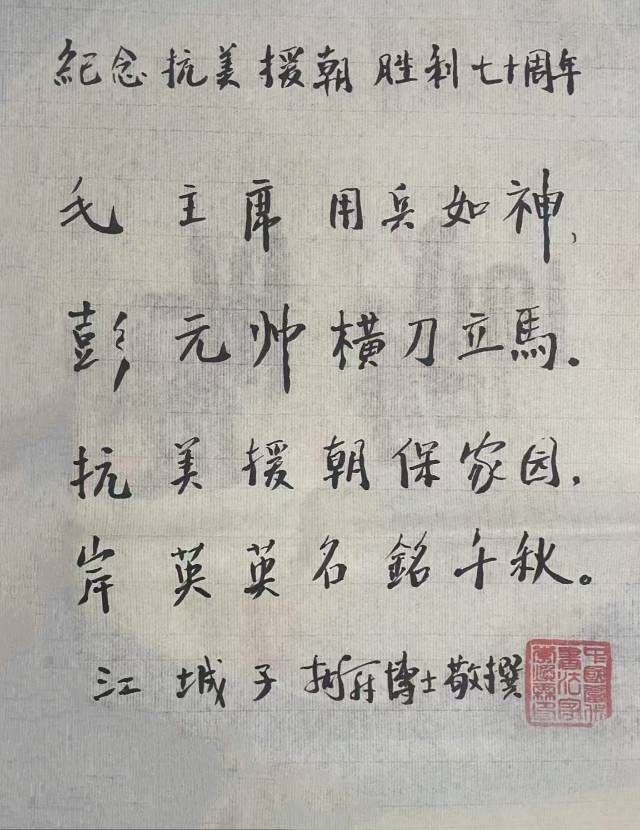 紀念抗美援朝胜利七十周年
毛主席用兵如神，
彭元帅横刀立馬。
抗美援朝保家园，
岸英英名銘千秋。
江城子 博士敬撰